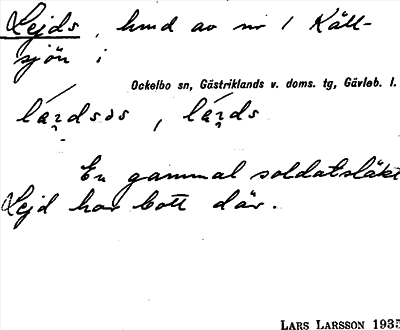 Lejds, hmd av nr 1 Käll-
sjön i
Ockelbo sn, Gästriklands v. doms. tg, Gävleb. l.
En gammal soldatsläkt
Lejd har bott där.
LARS LARSSON 1935